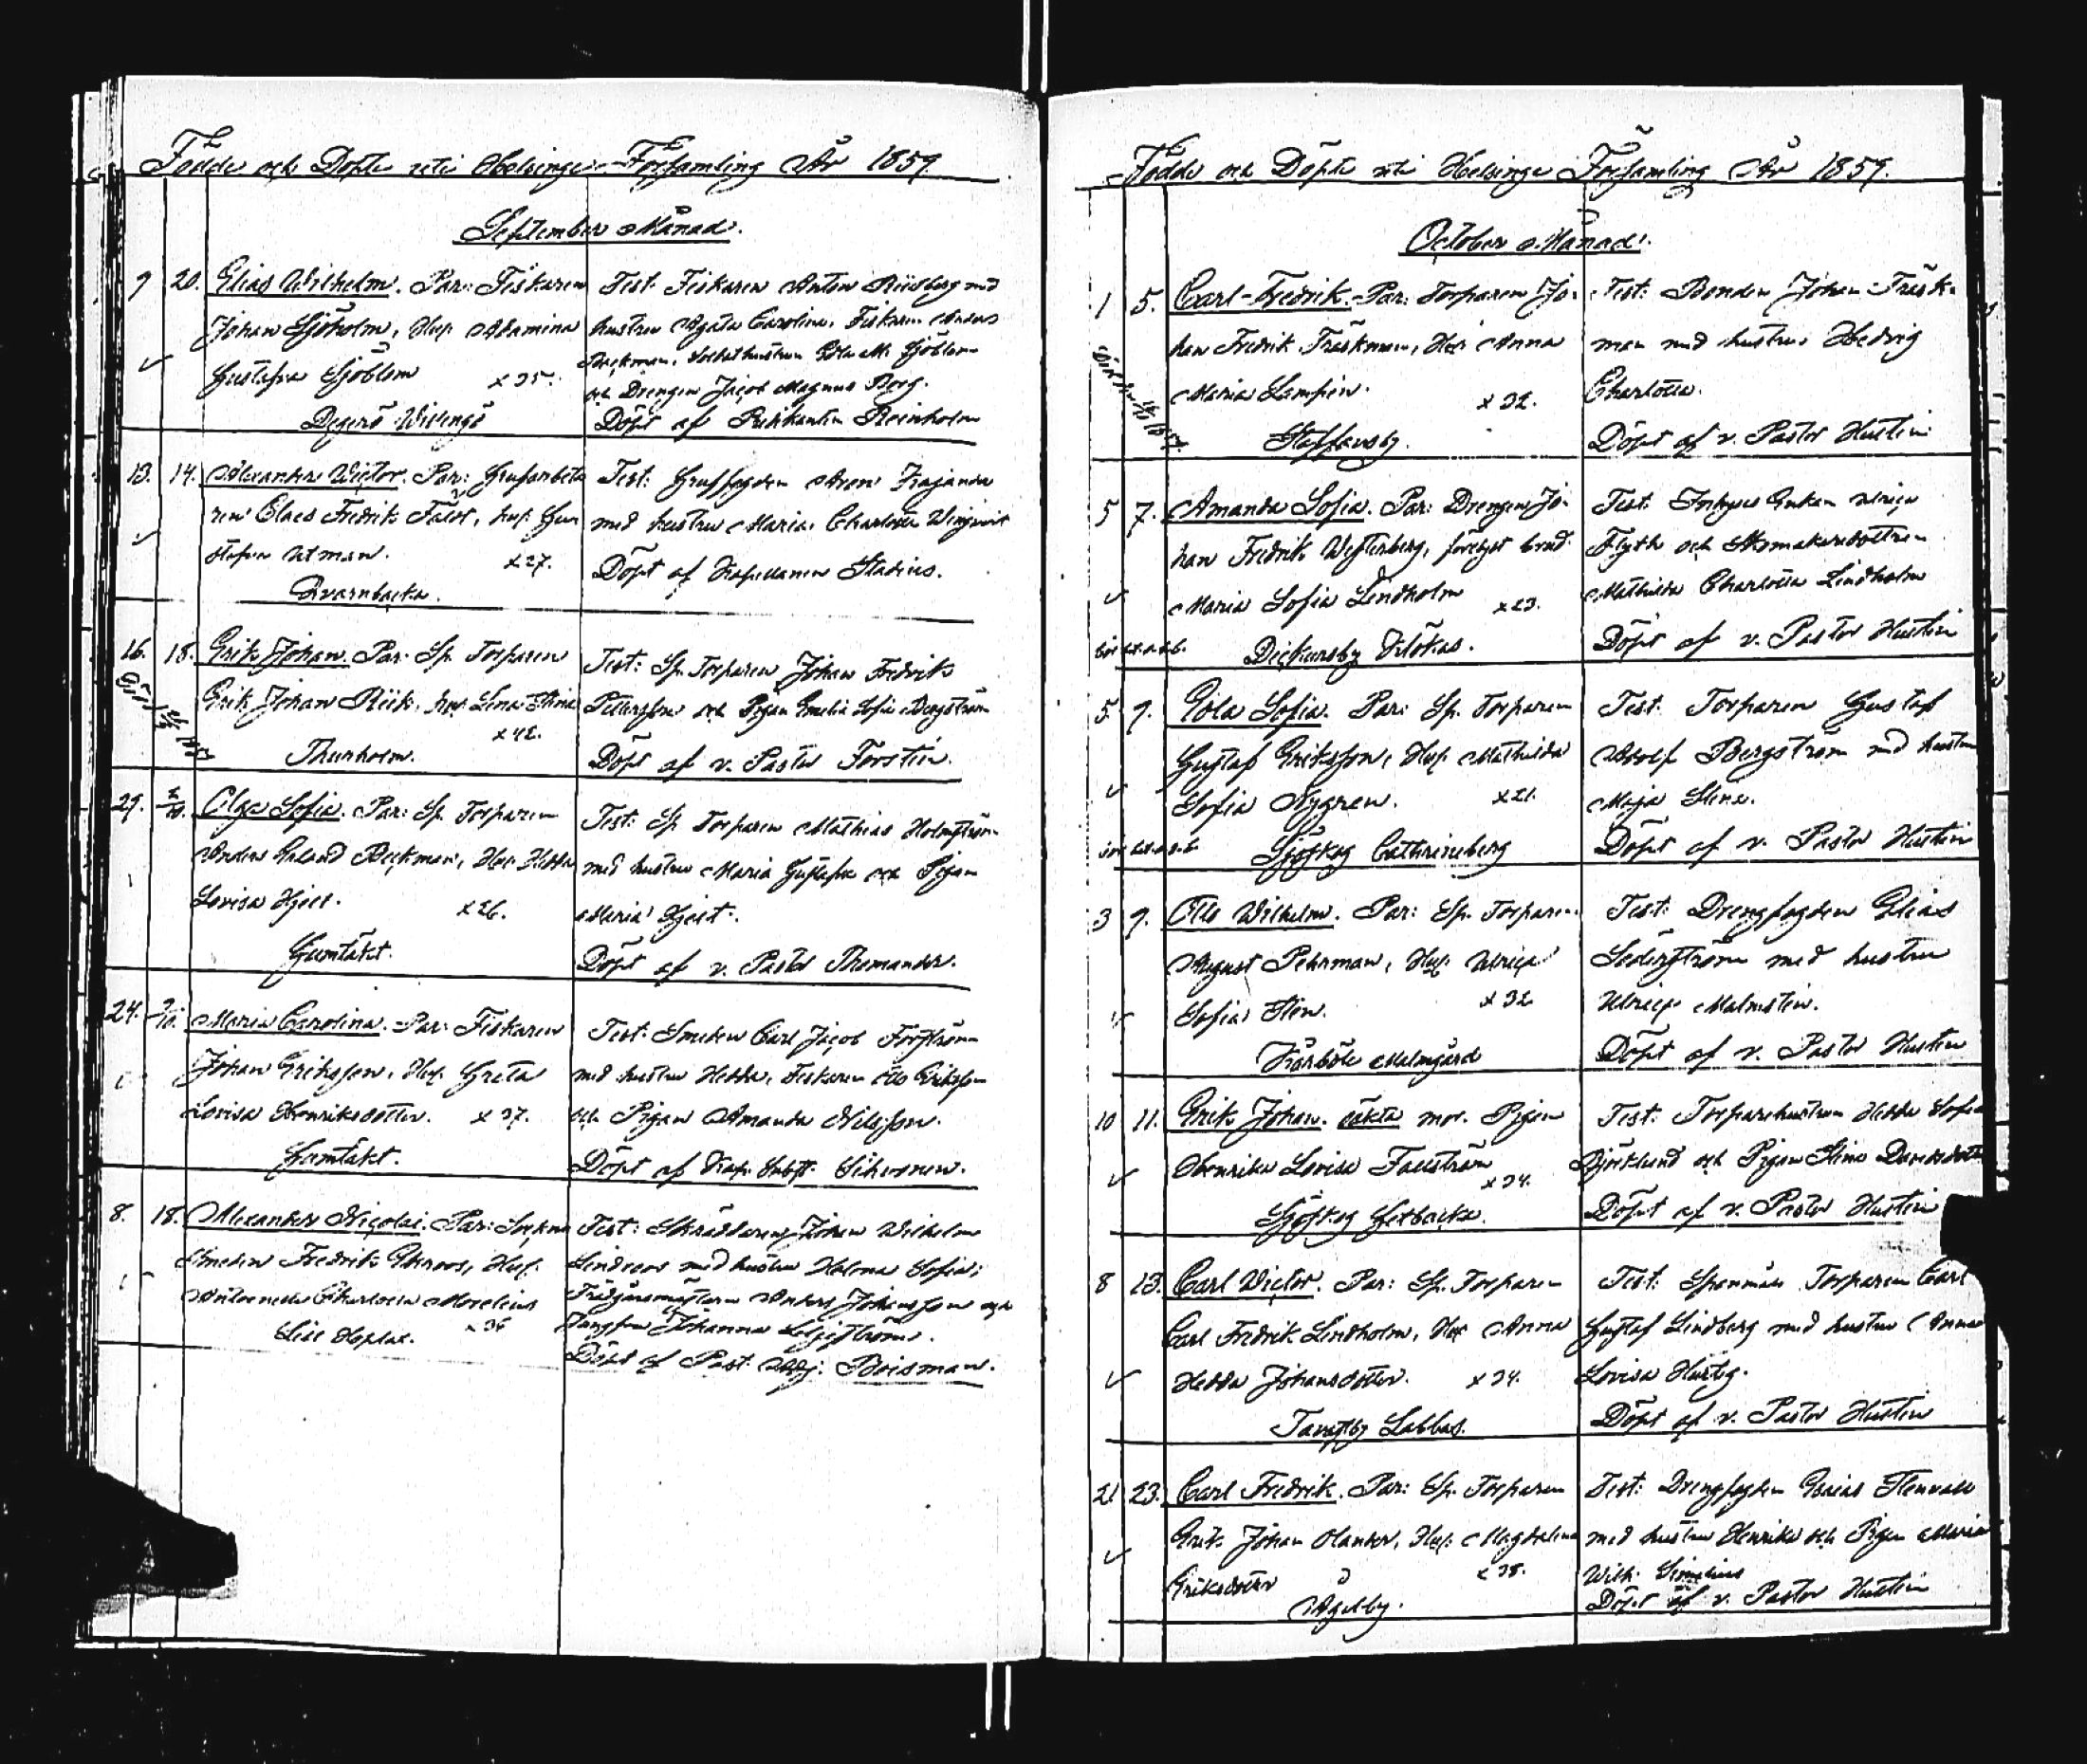 Födde och Döpte uti Helsinge Församling År 1859.
September Månad.
9 20. Elias Wilhelm. Par: Fiskaren
Johan Sjöholm, Hu. Adamina
Gustafva Sjöblom x 35.
Degerö Wilengs
Test: Fiskaren Anton Risberg med
hustru Agata Carolina, Fiskaren Anders
Beckman,
och Drengen Jacob Magnus Berg.
Döpt af Predikanten Reinholm
13. 14. Alexander Victor. Par: Grufarbeta
ren Claes Fredrik Fält, hu. Gu
stafva Utman. x 27.
Qvarnbacka.
Test: Gruffogden Aron Kajander
med hustru Maria Charlotta Winqvist
Döpt af Kapellanen Stadius.
16. 18. Erik Johan. Par: Sp. Torparen
Erik Johan Riik, hu. Lena Stina
x 42.
Thurholm.
Test: Sp. Torparen Johan Fredrik
Pettersson och Pigan Emelie Sofia Bergström
Döpt af v. Pastor Forstén.
29. 2/10. Olga Sofia. Par: Sp. Torparen
Anders Erland Beckman, Hu. Hedda
Lovisa Hjelt. x 26.
Gumtäkt.
Test: Sp Torparen Mathias Holmström
med hustru Maria Gustafva och Pigan
Maria Hjelt.
Döpt af v. Pastor Thomander.
24. 9/10. Maria Carolina. Par: Fiskaren
Johan Eriksson, Hu. Greta
Lovisa Henriksdotter. x 37.
Gumtäkt.
Test: Smeden Carl Jacob Forsström
med hustru Hedda, Fiskaren Eriksson
och Pigan Amanda Nilsson.
Döpt af Kap. Subst. Sihvonen.
8. 18. Alexander Nicolai. Par: Sockne
Smeden Fredrik Ekroos, Hu.
Antoinette Charlotta Morelius
x 36
Lill Hoplax.
Test: Skräddaren Johan Wilhelm
Lindroos med hustru Helena Sofia;
Trädgårdsmästaren Anders Johansson och
Jungfrun Johanna Liljeström.
Döpt af Past. Adj: Boisman.
Födde och Döpte uti Helsinge Församling År 1859.
October Månad.
1 5. Carl-Fredrik. Par: Torparen Jo-
han Fredrik Träskman, Hu: Anna
Maria Lampén. x 32.
Staffansby.
Test: Bonden Johan Träsk-
man med hustru Hedvig
Charlotta.
Döpt af v. Pastor Hustin
5 7. Amanda Sofia. Par: Drengen Jo-
han Fredrik Westerberg, förelyst brud
Maria Sofia Lindholm x 23.
Dickursby Kilökas.
Test: Enkan Ulrica
Flyth och Skomakaredottren
Mathilda Charlotta Lindholm
Döpt af v. Pastor Hustin
5. 9. Eola Sofia. Par: Sp. Torparen
Gustaf Eriksson, Hu. Mathilda
Sofia Nygren. x 21.
Sjöskog Cathrineberg
Test: Torparen Gustaf
Adolf Bergström med hustru
Maja Stina.
Döpt af v. Pastor Hustin
3 9. Otto Wilhelm. Par: Sp. Torparen
August Pehrman, Hu. Ulrica
Sofia Sten. x 32
Kårböle Malmgård
Test: Drengfogden Elias
Söderström med hustru
Ulrica Malmstén.
Döpt af v. Pastor Hustin
10 11. Erik Johan. oäkta mor. Pigan
Henrika Lovisa Fallström
x 34.
Sjöskog Getbacka.
Test: Torparehustrun Hedda Sofia
Björklund och Pigan Stina Davidsdotter
Döpt af v. Pastor Hustin
8 13. Carl Victor. Par: Sp. Torparen
Carl Fredrik Lindholm, Hu. Anna
Hedda Johansdotter. x 24.
Tavastby Labbas.
Test: Spanmåls Torparen Carl
Gustaf Lindberg med hustru Anna
Lovisa Hurtig.
Döpt af v. Pastor Hustin
21 23. Carl Fredrik. Par: Sp. Torparen
Erik Johan Olander, Hu. Magdalena
Eriksdotter x 38.
Åggelby.
Test: Drengfogden Esaias Stenvall
med hustru Henrika och Pigan Maria
Wilh. Simelius
Döpt af v. Pastor Hustin